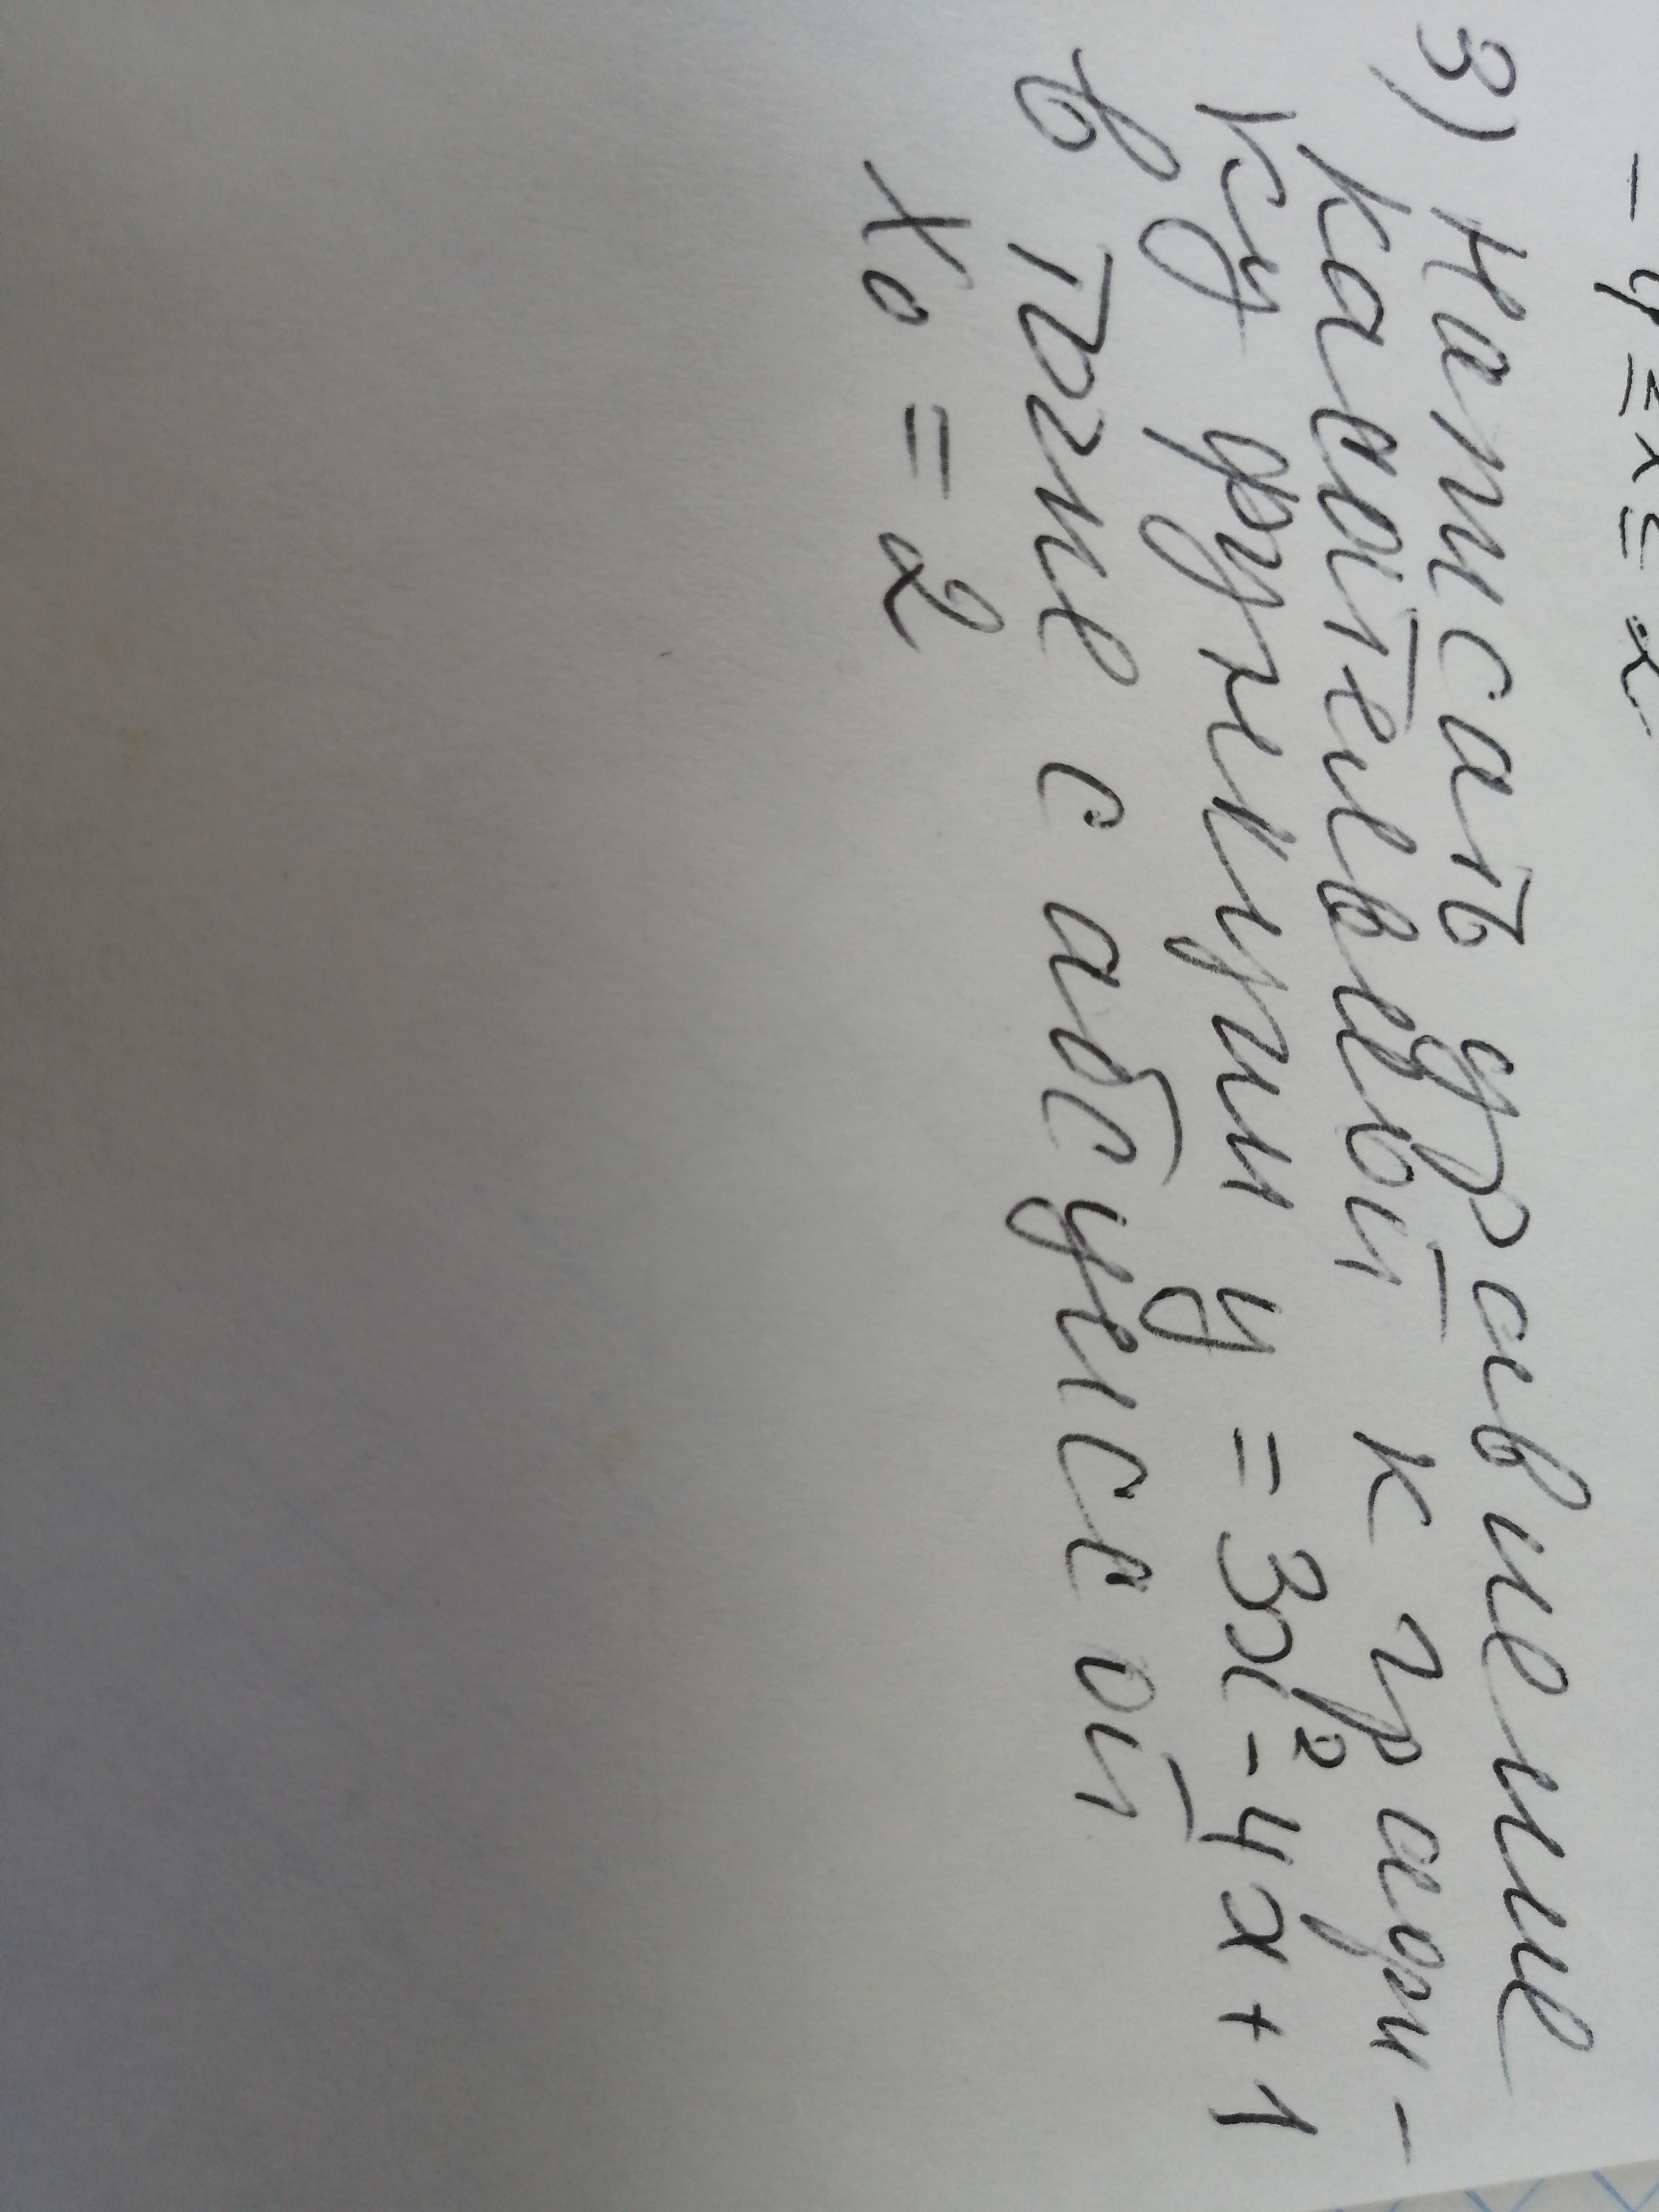 - 4 ≤ x ≤ 2
3) Написать уравнение
касательной к графи-
ку функции y = 3x² - 4x + 1
в точке с абсциссой
x₀ = 2